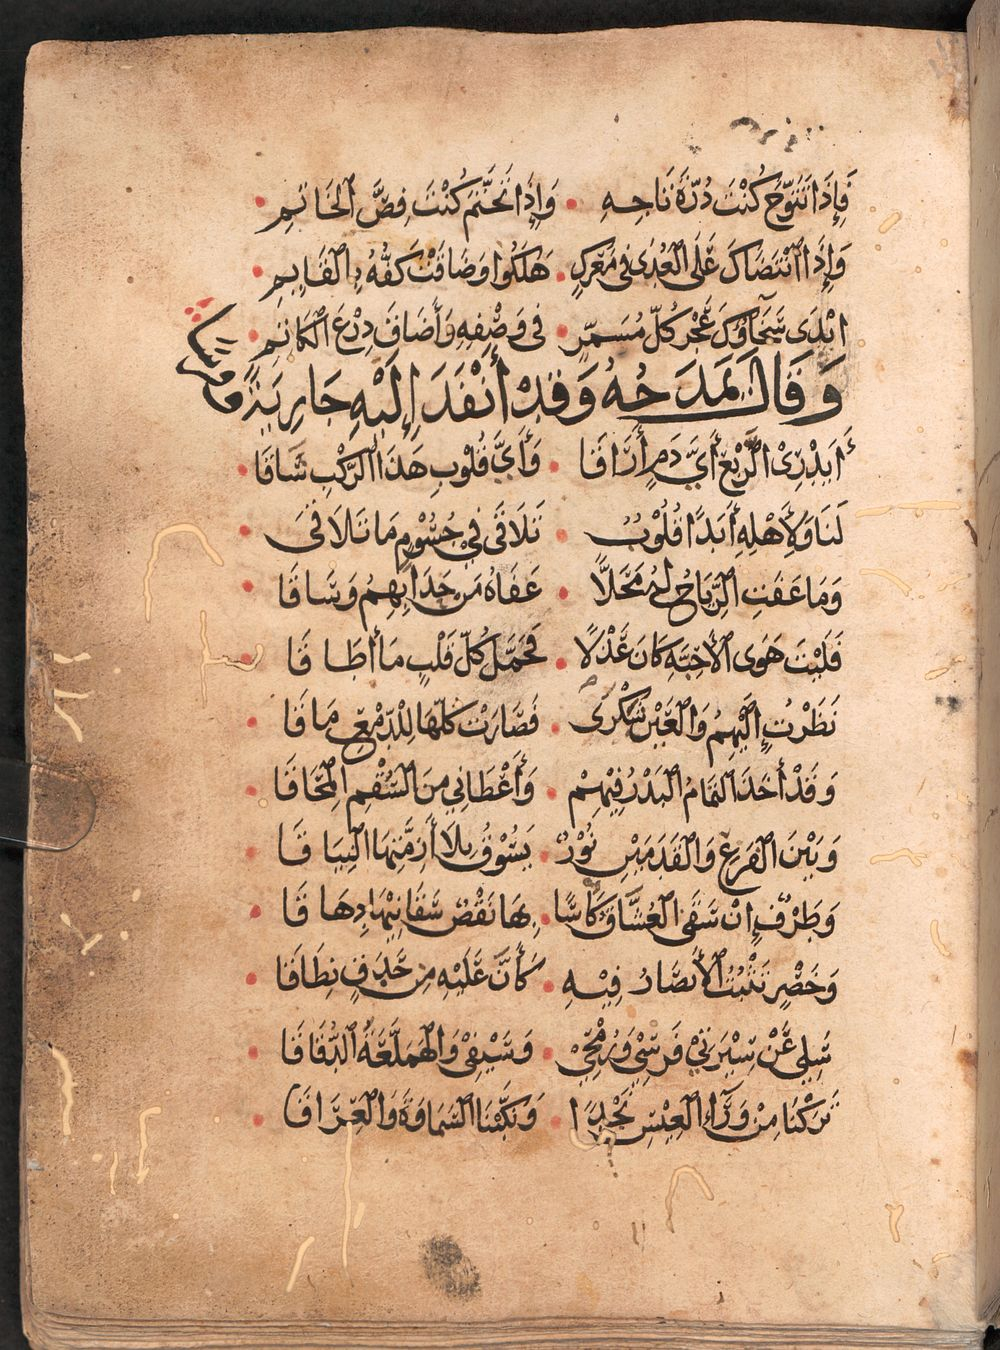 فَإِذَا تَتَوَّجَ كُنْتَ دُرَّةَ تَاجِهِ • وَإِذَا تَخَتَّمَ كُنْتَ فِصَّ الْخَاتِمِ •
وَإِذَا انْتَضَاكَ عَلَى الْعُدَى فِي مَعْرَكٍ • هَلَكُوا وَضَاقَتْ كَفُّهُ بِالْقَايِمِ •
ابْدَى سَخَاؤُكَ عَجْزَ كُلِّ مُشَمِّرٍ • فِي وَصْفِهِ وَأَضَاقَ ذِرْعَ الْكَاتِمِ •
وَقَالَ يَمْدَحُهُ وَقَدْ أَنْفَدَ إِلَيْهِ جَارِيَةً
أَيَدْرِي الرَّبْعُ أَيَّ دَمٍ أَرَاقَا • وَأَيَّ قُلُوبِ هَذَا الرَّكْبِ شَاقَا •
لَنَا وَلِأَهْلِهِ أَبَدًا قُلُوبٌ • تَلَاقَى فِي جُسُومٍ مَا تَلَاقَى •
وَمَا عَفَتِ الرِّيَاحُ لَهُ مَحَلًّا • عَفَاهُ مَن حَدَا بِهِمُ وَسَاقَا •
فَلَيْتَ هَوَى الْأَحِبَّةِ كَانَ عَدْلًا • فَحَمَّلَ كُلَّ قَلْبٍ مَا أَطَاقَا •
نَظَرْتُ إِلَيْهِمُ وَالْعَيْنُ شَكْرَى • فَصَارَتْ كُلُّهَا لِلدَّمْعِ مَاقَا •
وَقَدْ أَخَذَ التَّمَامُ الْبَدْرُ فِيْهِمْ • وَأَعْطَانِي مِنَ السُّقْمِ الْمِحَاقَا •
وَبَيْنَ الْفَرْعِ وَالْقَدَمَيْنِ نُوْرٌ • يَسُوْقُ بِلَا أَزِمَّتِهَا النِّيَاقَا •
وَطَرْفٍ إِنْ سَقَى الْعُشَّاقَ كَأْسًا • بِهَا نَقْصٌ سَقَانِيْهَا دِهَاقَا •
وَخَصْرٍ تَثْبُتُ الْأَبْصَارُ فِيْهِ • كَأَنَّ عَلَيْهِ مِن حَدَقٍ نِطَاقَا •
سَلِي عَنْ سِيْرَتِي فَرَسِي وَرُمْحِي • وَسَيْفِي وَالْهَمَلَّعَةَ الدِّفَاقَا •
تَرَكْنَا مِنْ وَرَاءِ الْعِيْسِ نَجْدًا • وَنَكَّبْنَا السَّمَاوَةَ وَالْعِرَاقَا •